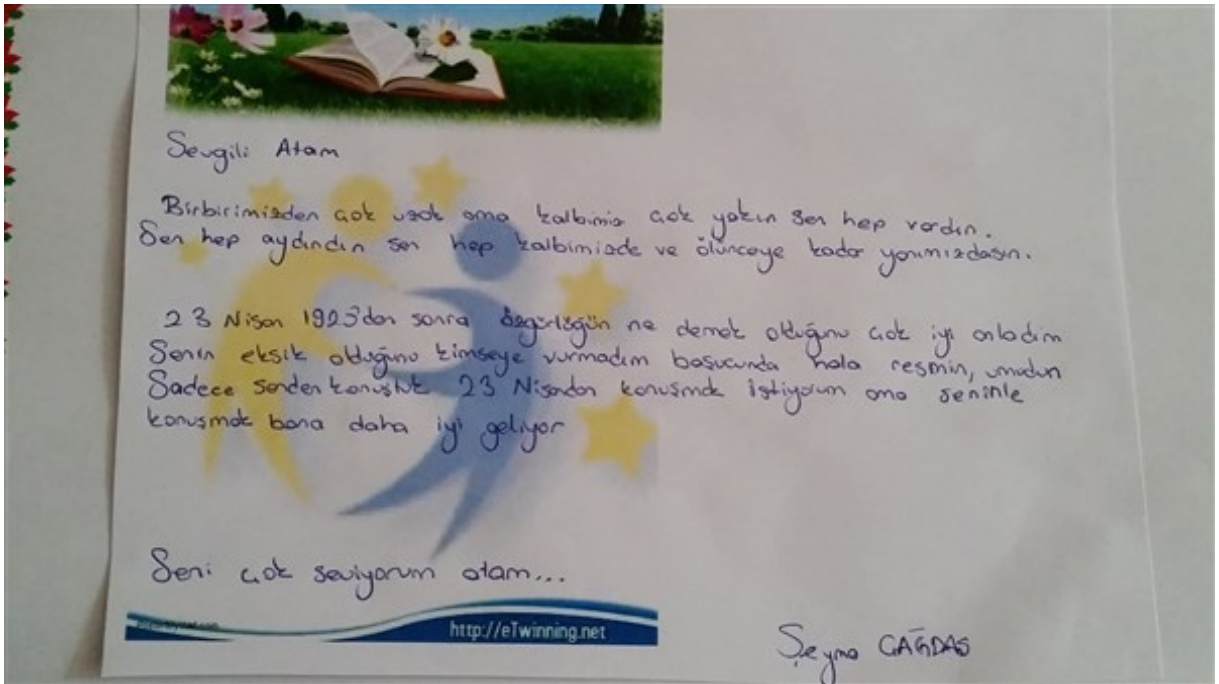 Sevgili Atam
Birbirimizden çok uzak ama kalbimiz çok yakın sen hep vardın.
Sen hep aydındın sen hep kalbimizde ve ölünceye kadar yanımızdasın.
23 Nisan 1923'dan sonra özgürlüğün ne demek olduğunu çok iyi anladım
Senin eksik olduğunu kimseye vurmadım başucunda hala resmin, umudun
Sadece senden konuştuk 23 Nisandan konuşmak istiyorum ama seninle
konuşmak bana daha iyi geliyor
Seni çok seviyorum atam...
http://eTwinning.net
Şeyma ÇAĞDAŞ